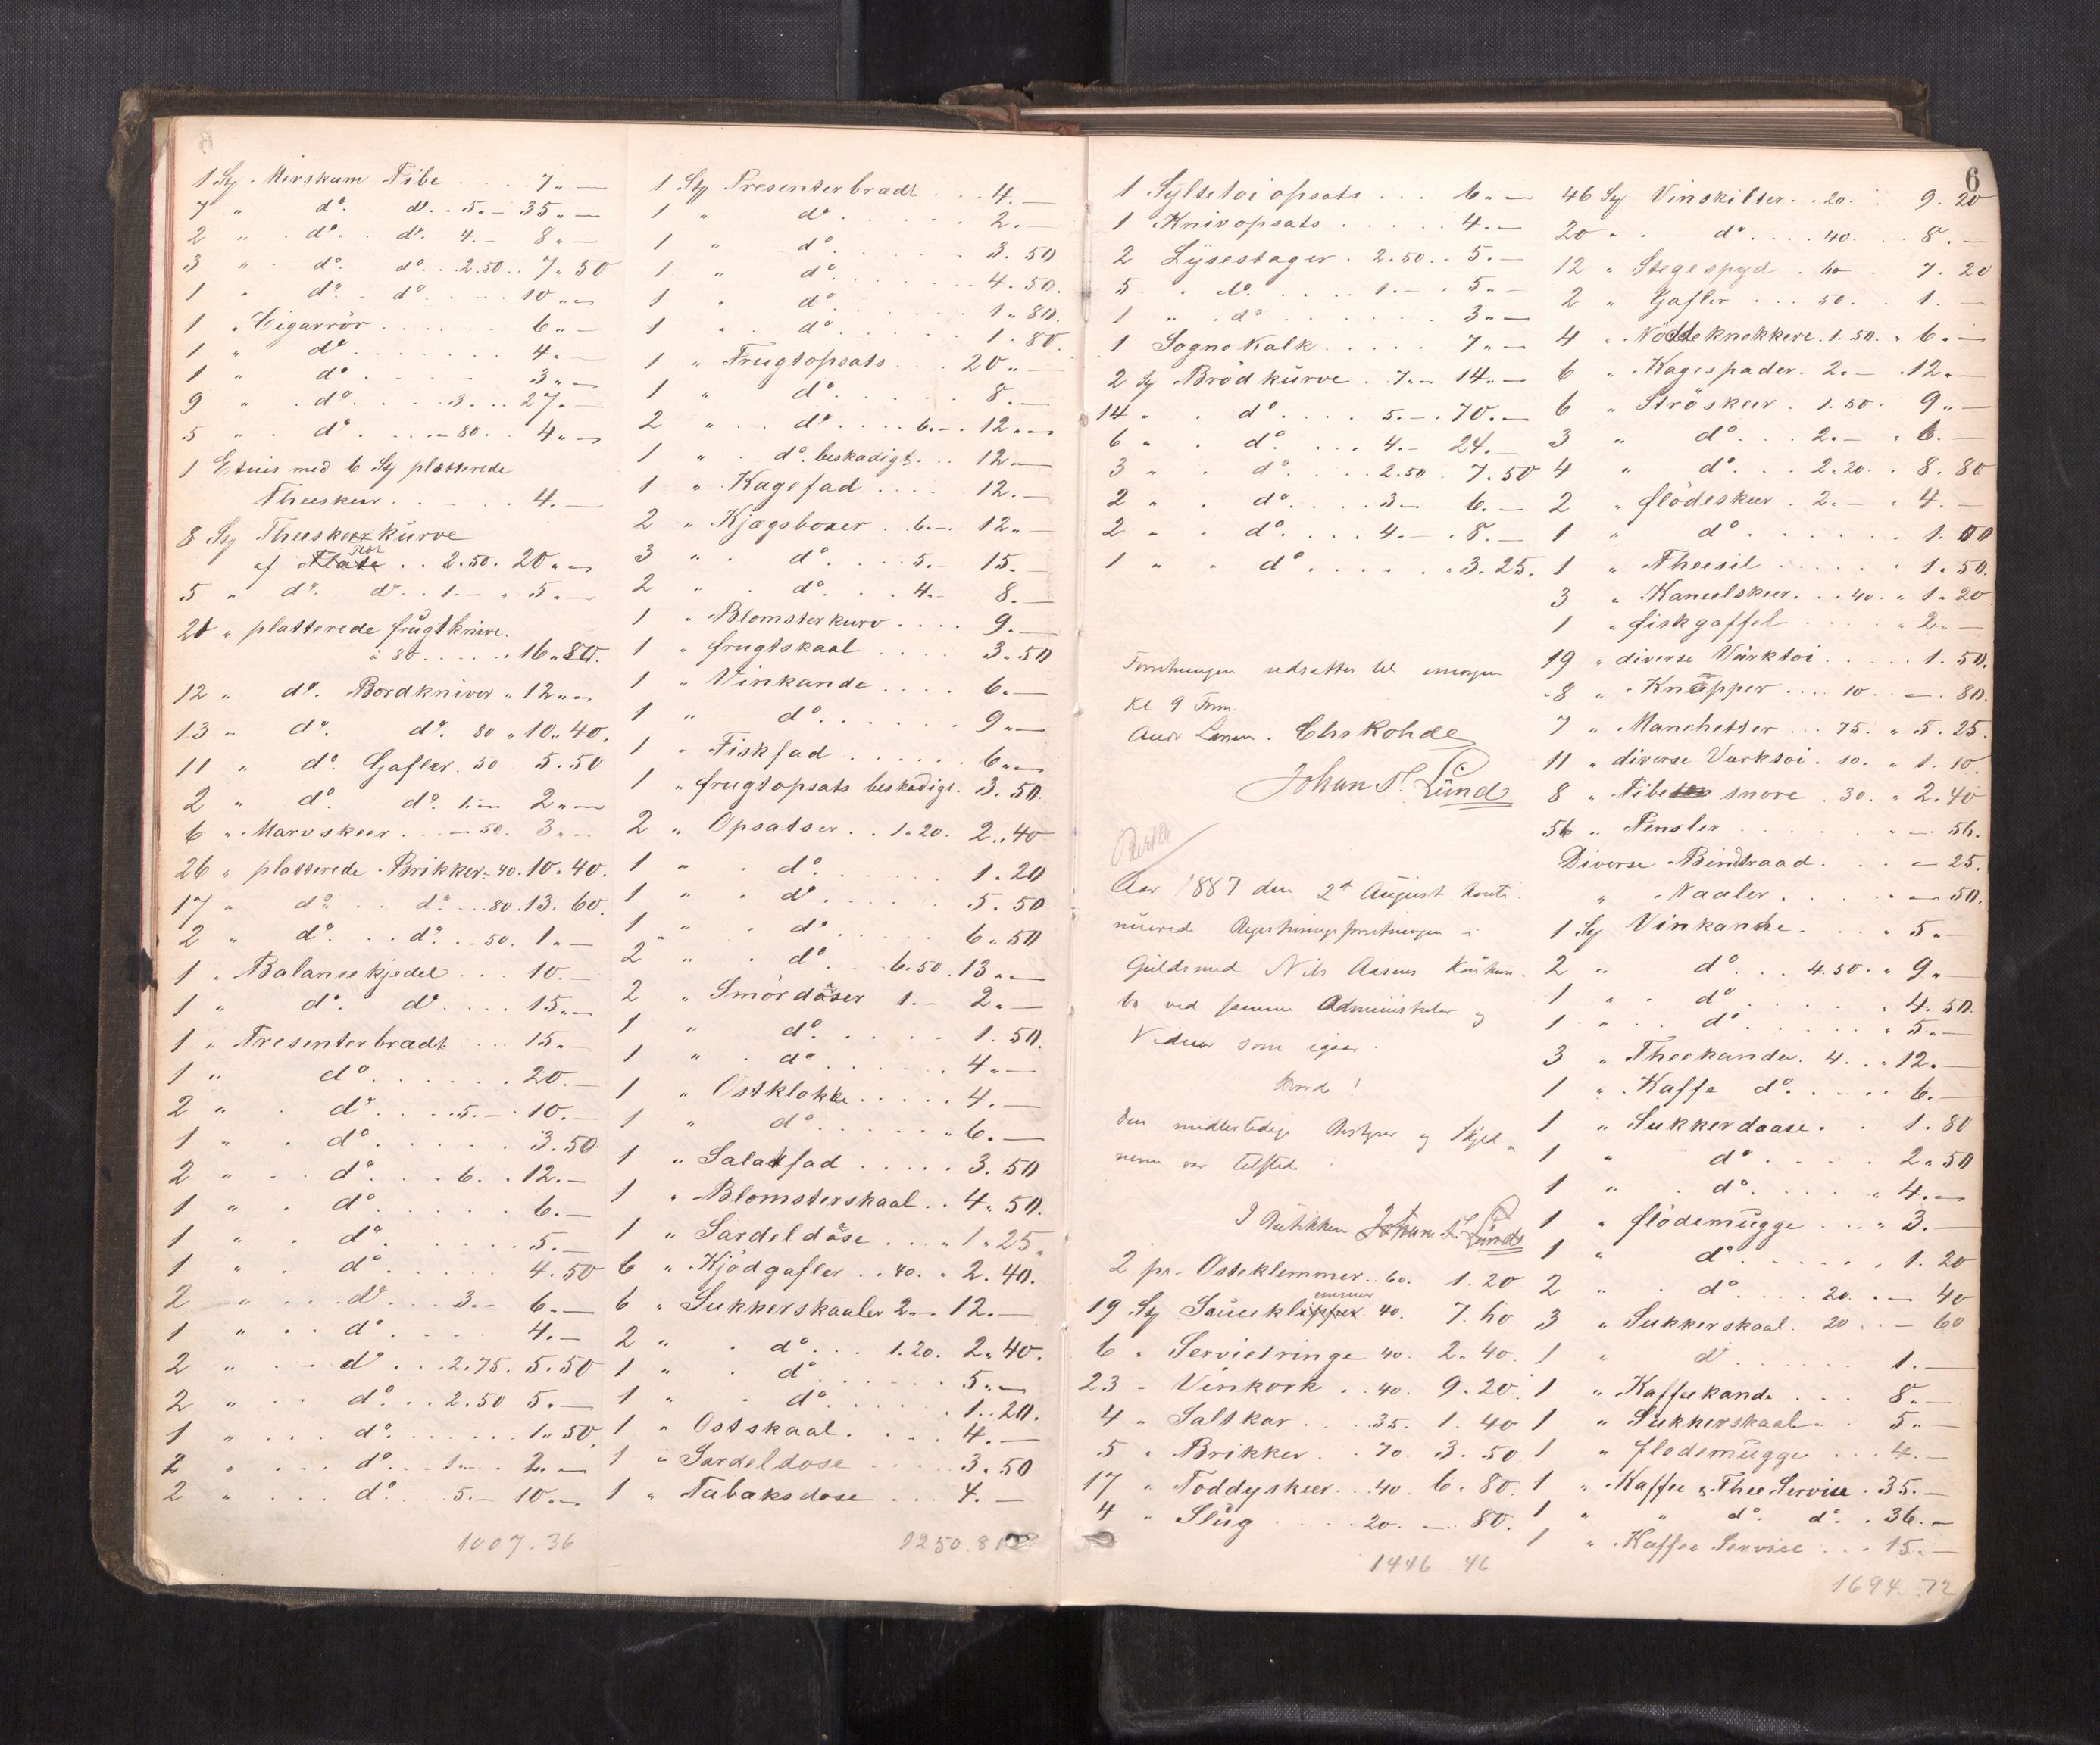 1 Stk. Merskum Pibe .... 7 " —
7 " do. do. . 5. — 35 " —
2 " do. do. 4. — 8 " —
3 " do. do. . 2.50 . 7 " 50
1 " do. do. .... 10 " —
1 " Cigarrör ...... 6 " —
1 " do ....... 4. —
1 " do ..... 3 " —
9 " do .... 3. . 27. —
5 " do .... — 80 . 4 " —
1 Etuis med 6 Stk platterede
Theeskeer ..... 4. —
8 Stk Theeskekurve
af . . 2.50. 20 " —
5 " do. do. . 1. — " 5. —
21 " platterede frugtknive.
à 80 ..... 16 " 80.
12 " do. Bordkniver " 12 " —
13 " do. do. 80 " 10 " 40.
11 " do. Gafler. 50 5.50
2 " do. do. 1. — 2 " —
6 " Marvskeer ... — 50. 3 " —
26 " platterede Brikker. 40. 10. 40.
17 " do . . do . 80. 13. 60.
2 " do . . do . . 50. 1 " —
1 " Balansekjedel ... 10. —
1 " do. do .... 15 " —
1 " Presenterbradt ... 15. —
1 " do ...... 20. —
2 " do .... 5. — . 10. —
1 " do ...... 3.50
2 " do .... 6. . 12. —
1 " do ...... 6. —
1 " do ...... 5. —
1 " do ...... 4.50
2 " do ... 3. — 6. —
1 " do ..... 4. —
2 " do ... 2.75. 5.50
2 " do ... 2.50 5. —
1 " do ...... 1 " 50.
2 " do .. 1. — . 2. —
2 " do ... 5. — 10. —
1007. 36
1 Stk Presenterbradt ... 4. —
1 " do ...... 2. —
1 " do ...... 3. 50
1 " do ...... 4. 50.
1 " do ...... 1 " 80.
1 " do ...... 1 " 80.
1 " Frugtopsats ... 20 " —
1 " do ...... 8. —
2 " do .... 6. — . 12 " —
1 " do. beskadigt ... 12 —
1 " Kagefad .... 12. —
2 " Kjægsboxer . . 6. — . 12 " —
3 " do .... 5. — 15. —
2 " do .... 4. — 8. —
1 " Blomsterkurv .... 9. —
1 " frugtskaal .... 3. 50
1 " Vinkande .... 6. —
1 " do ...... 9 " —
1 " Fiskfad ...... 6 " —
1 " frugtopsats beskadigt. 3. 50.
2 " Opsatser . . 1 " 20. 2 " 40
1 " do ...... 1. 20
1 " do ...... 5. 50
1 " do ...... 6 " 50
2 " do ... 6. 50. 13 " —
2 " Smördåser 1. — 2. —
1 " do ...... 1. 50.
1 " do ...... 4 " —
1 " Ostklokke ..... 4. —
1 " do ...... 6. —
1 " Salatfad ..... 3. 50
1 " Blomsterskaal .. 4. 50.
1 " Sardeldåse ... 1 " 25.
6 " Kjödgafler . . 40. . 2. 40.
6 " Sukkerskaaler 2. — 12. —
2 " do ... 1. 20. 2. 40.
1 " do ...... 5 " —
1 " do ...... 1. 20.
1 " Ostskaal ..... 4. —
1 " Sardeldose .... 3. 50
1 " Tabaksdose ... 4. —
1250. 81
1 Syltetoiopsats ... 6. —
1 Knivopsats ..... 4. —
2 Lysestager . 2.50. . 5. —
5 " do .... 1. — . 5 " —
1 " do ....... 3 " —
1 Sognekalk ..... 7 " —
2 Stk Brödkurve . 7 " — 14 " —
14 " do .... 5. — . 70. —
6 " do .... 4. — 24. —
3 " do .... 2.50 . 7.50
2 " do .... 3 — 6. —
2 " do .... 4. — . 8. —
1 " do ..... 3. 25.
Forretningen udsattes til imorgen
Kl 9 Form.
Chr Rohde
Johan S. Lund
Aar 1887 den 2d August konti
nuerede Registreringsforretningen i
Guldsmed Nils Aasens Konkurs
bo ved samme Administrator og
Vidner som igaar.
Den midlertidige Bestyrer og Skyld
neren var tilsted
I Butikken Johan S. Lund
2 pr. Osteklemmer . . 60. 1. 20
19 Stk Sauceklipper emmer . 40. 7. 60
6 " Servietringe 40. 2. 40.
23 " Vinkork . . 40. 9. 20.
4 " Saltkar ... 35. 1. 40
5 " Brikker . . 70. 3. 50
17 " Toddyskeer . . 40 6. 80.
4 " Slug .... 20. — . 80.
1446 46
6
46 Stk Vinskilter . . 20. . 9. 20
20 " do .... 40. .. 8. —
12 " Stegespyd . 60 . 7. 20
2 " Gafler ... 50. . 1. —
4 " Nöddeknekkere. 1.50. " 6. —
6 " Kagespader. 2. — . 12. —
6 " Ströskeer . 1.50. 9 " —
3 " do ... 2. — . 6. —
4 " do ... 2.20. . 8. 80
2 " flödeskeer . 2. — . 4. —
1 " do ...... 1. 00
1 " Theesil ..... 1. 50.
3 " Kaneelskeer. . . 40. " 1. 20
1 " fiskgaffel ..... 2 " —
19 " diverse Värktoi ..... 1. 50.
8 " Knapper .... 10. . — . 80.
7 " Manchetter ... 75. " 5. 25.
11 " diverse Varktoi . 10. " 1. 10.
8 " Pibe snore . 30. " 2. 40
56 " Pensler ...... — 56.
Diverse Bindtraad ... — 25.
" Naaler ..... — 50.
1 Stk Vinkande .... 5. —
2 " do ... 4.50. " 9 " —
1 " do ...... 4. 50.
1 " do ...... 5. —
3 " Theekander . 4. . . 12. —
1 " Kaffe do. .... 6. —
1 " Sukkerdaase . . 1. 80
1 " do ..... 2 " 50
1 " do ..... 4. —
1 " flödemugge ... 3. —
1 " do ...... 1. 20
2 " do ... 20. . — 40
3 " Sukkerskaal . 20 . . — 60
1 " do ...... 1. —
1 " Kaffeekande ... 8. —
1 " Sukkerskaal . . 5 " —
1 " flödemugge ... 4. —
1 " Kaffee & Thee Service . 35. —
1 " " do. do. . 36. —
1 " Kaffee Service ... 15. —
1694. 72